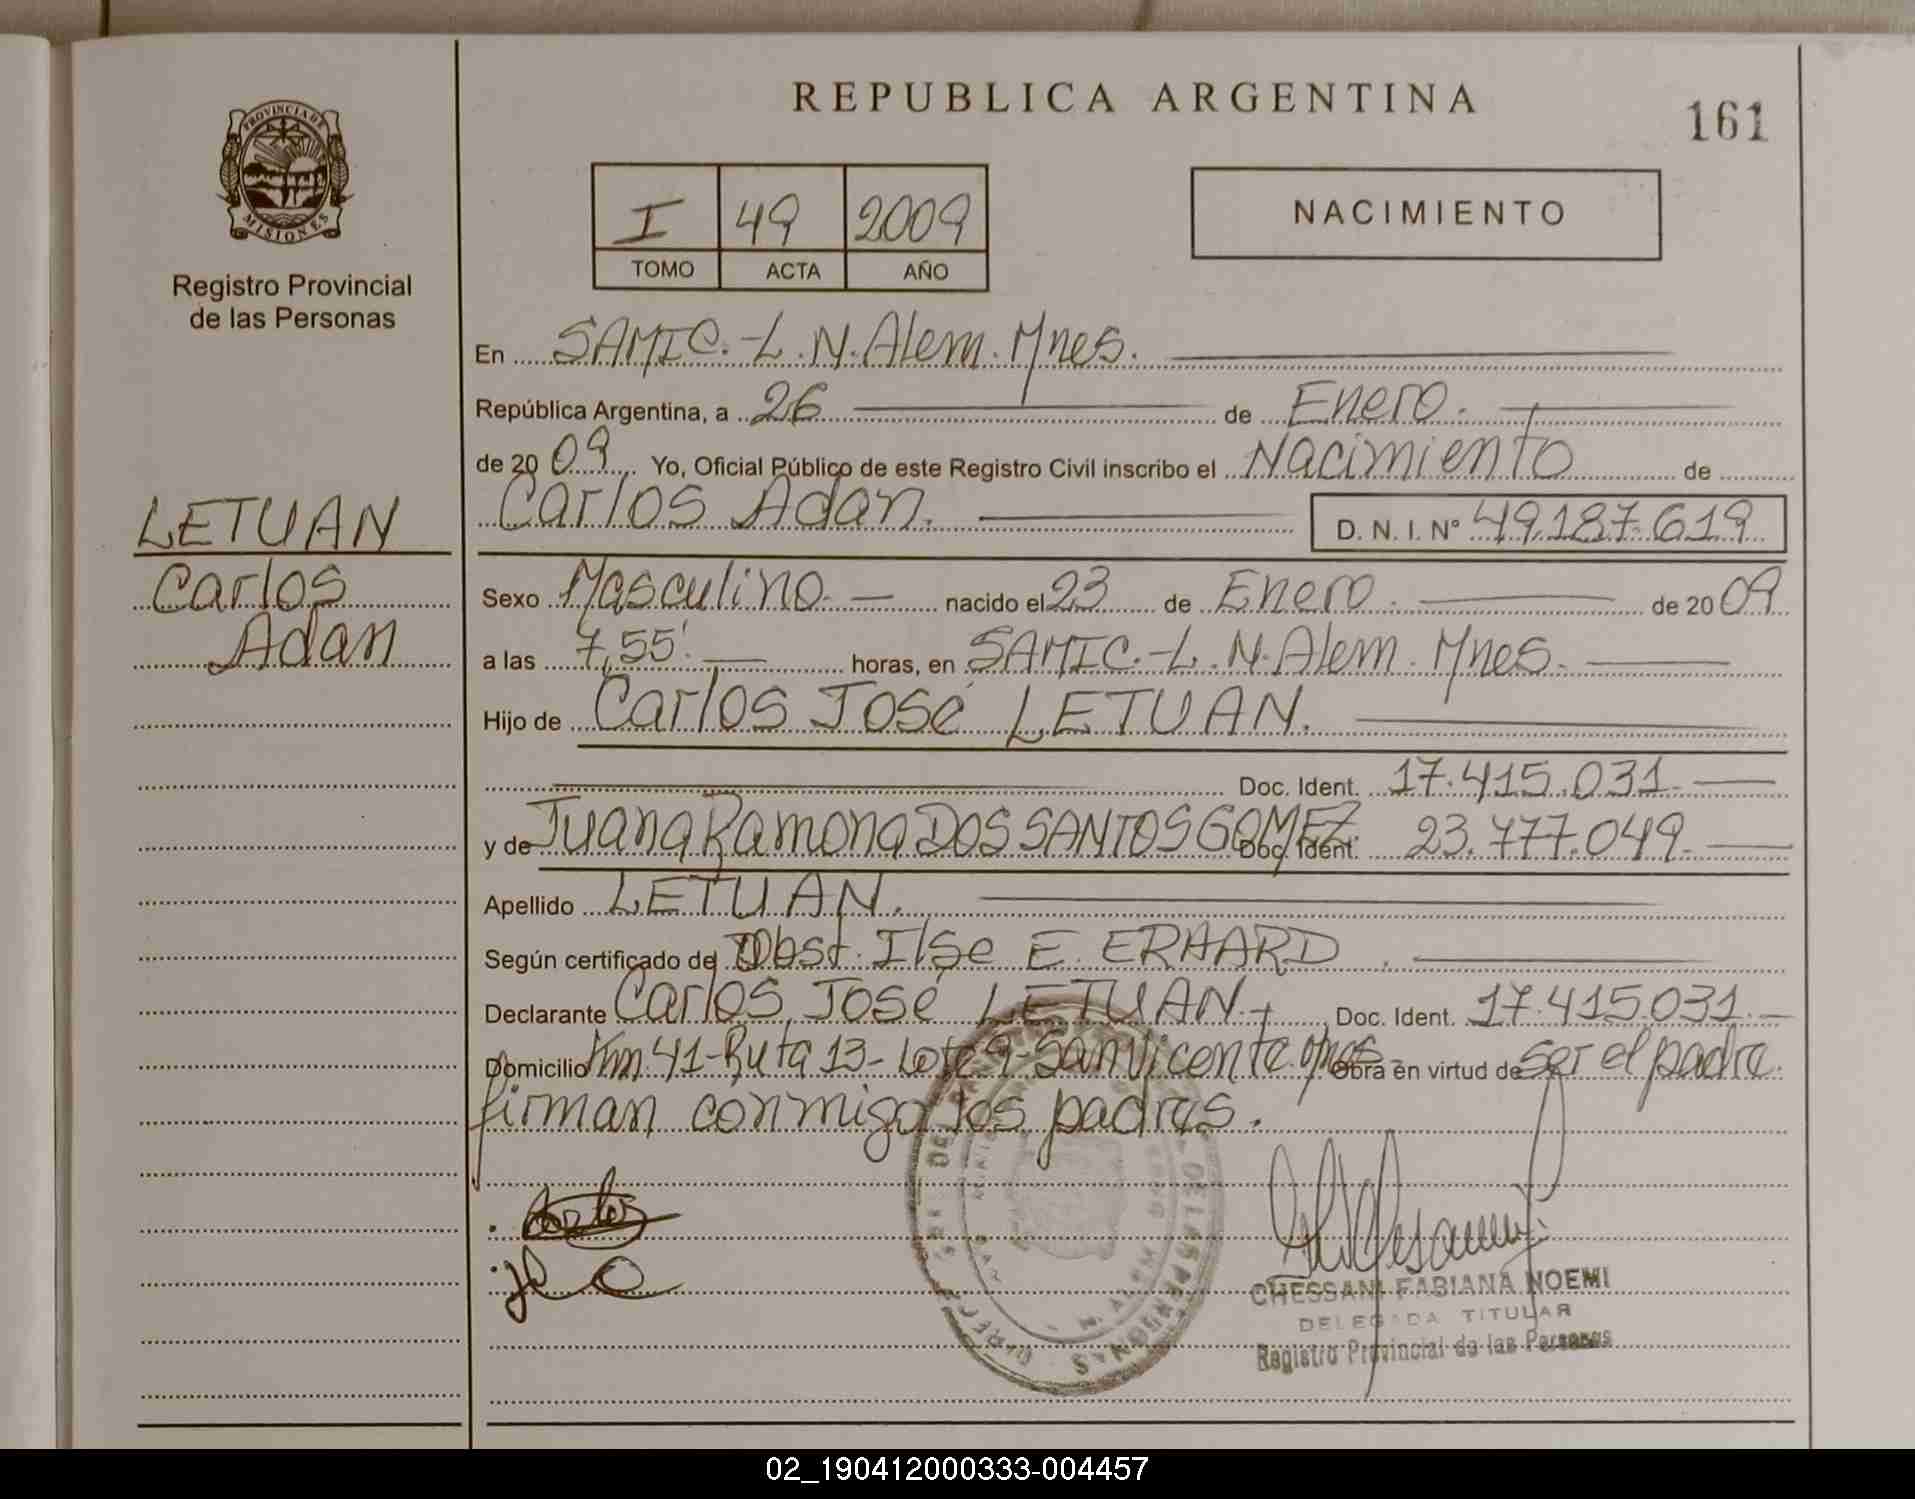 REPUBLICA ARGENTINA
161
PROVINCIA DE
MISIONES
Registro Provincial
de las Personas
I 49 2009
TOMO ACTA AÑO
NACIMIENTO
En SAMIC.-L.N.Alem.Mnes.
República Argentina, a 26 de Enero.
de 20 09 Yo, Oficial Público de este Registro Civil inscribo el Nacimiento de
Carlos Adan. D. N. I. Nº 49.187.619
LETUAN
Carlos
Adan
Sexo Masculino. nacido el 23 de Enero. de 20 09
a las 7,55'. horas, en SAMIC.-L.N.Alem.Mnes.
Hijo de Carlos José LETUAN.
Doc. Ident. 17.415.031
y de Juana Ramona DOS SANTOS GOMEZ Doc. Ident. 23.777.049
Apellido LETUAN.
Según certificado de Obst. Ilse E. ERHARD.
Declarante Carlos José LETUAN.- Doc. Ident. 17.415.031.
Domicilio Km 41-Ruta 13-Lote 9-San Vicente. Mnes. Obra en virtud de ser el padre.
firman conmigo los padres.
CHESSANI FABIANA NOEMI
DELEGADA TITULAR
Registro Provincial de las Personas
02_190412000333-004457